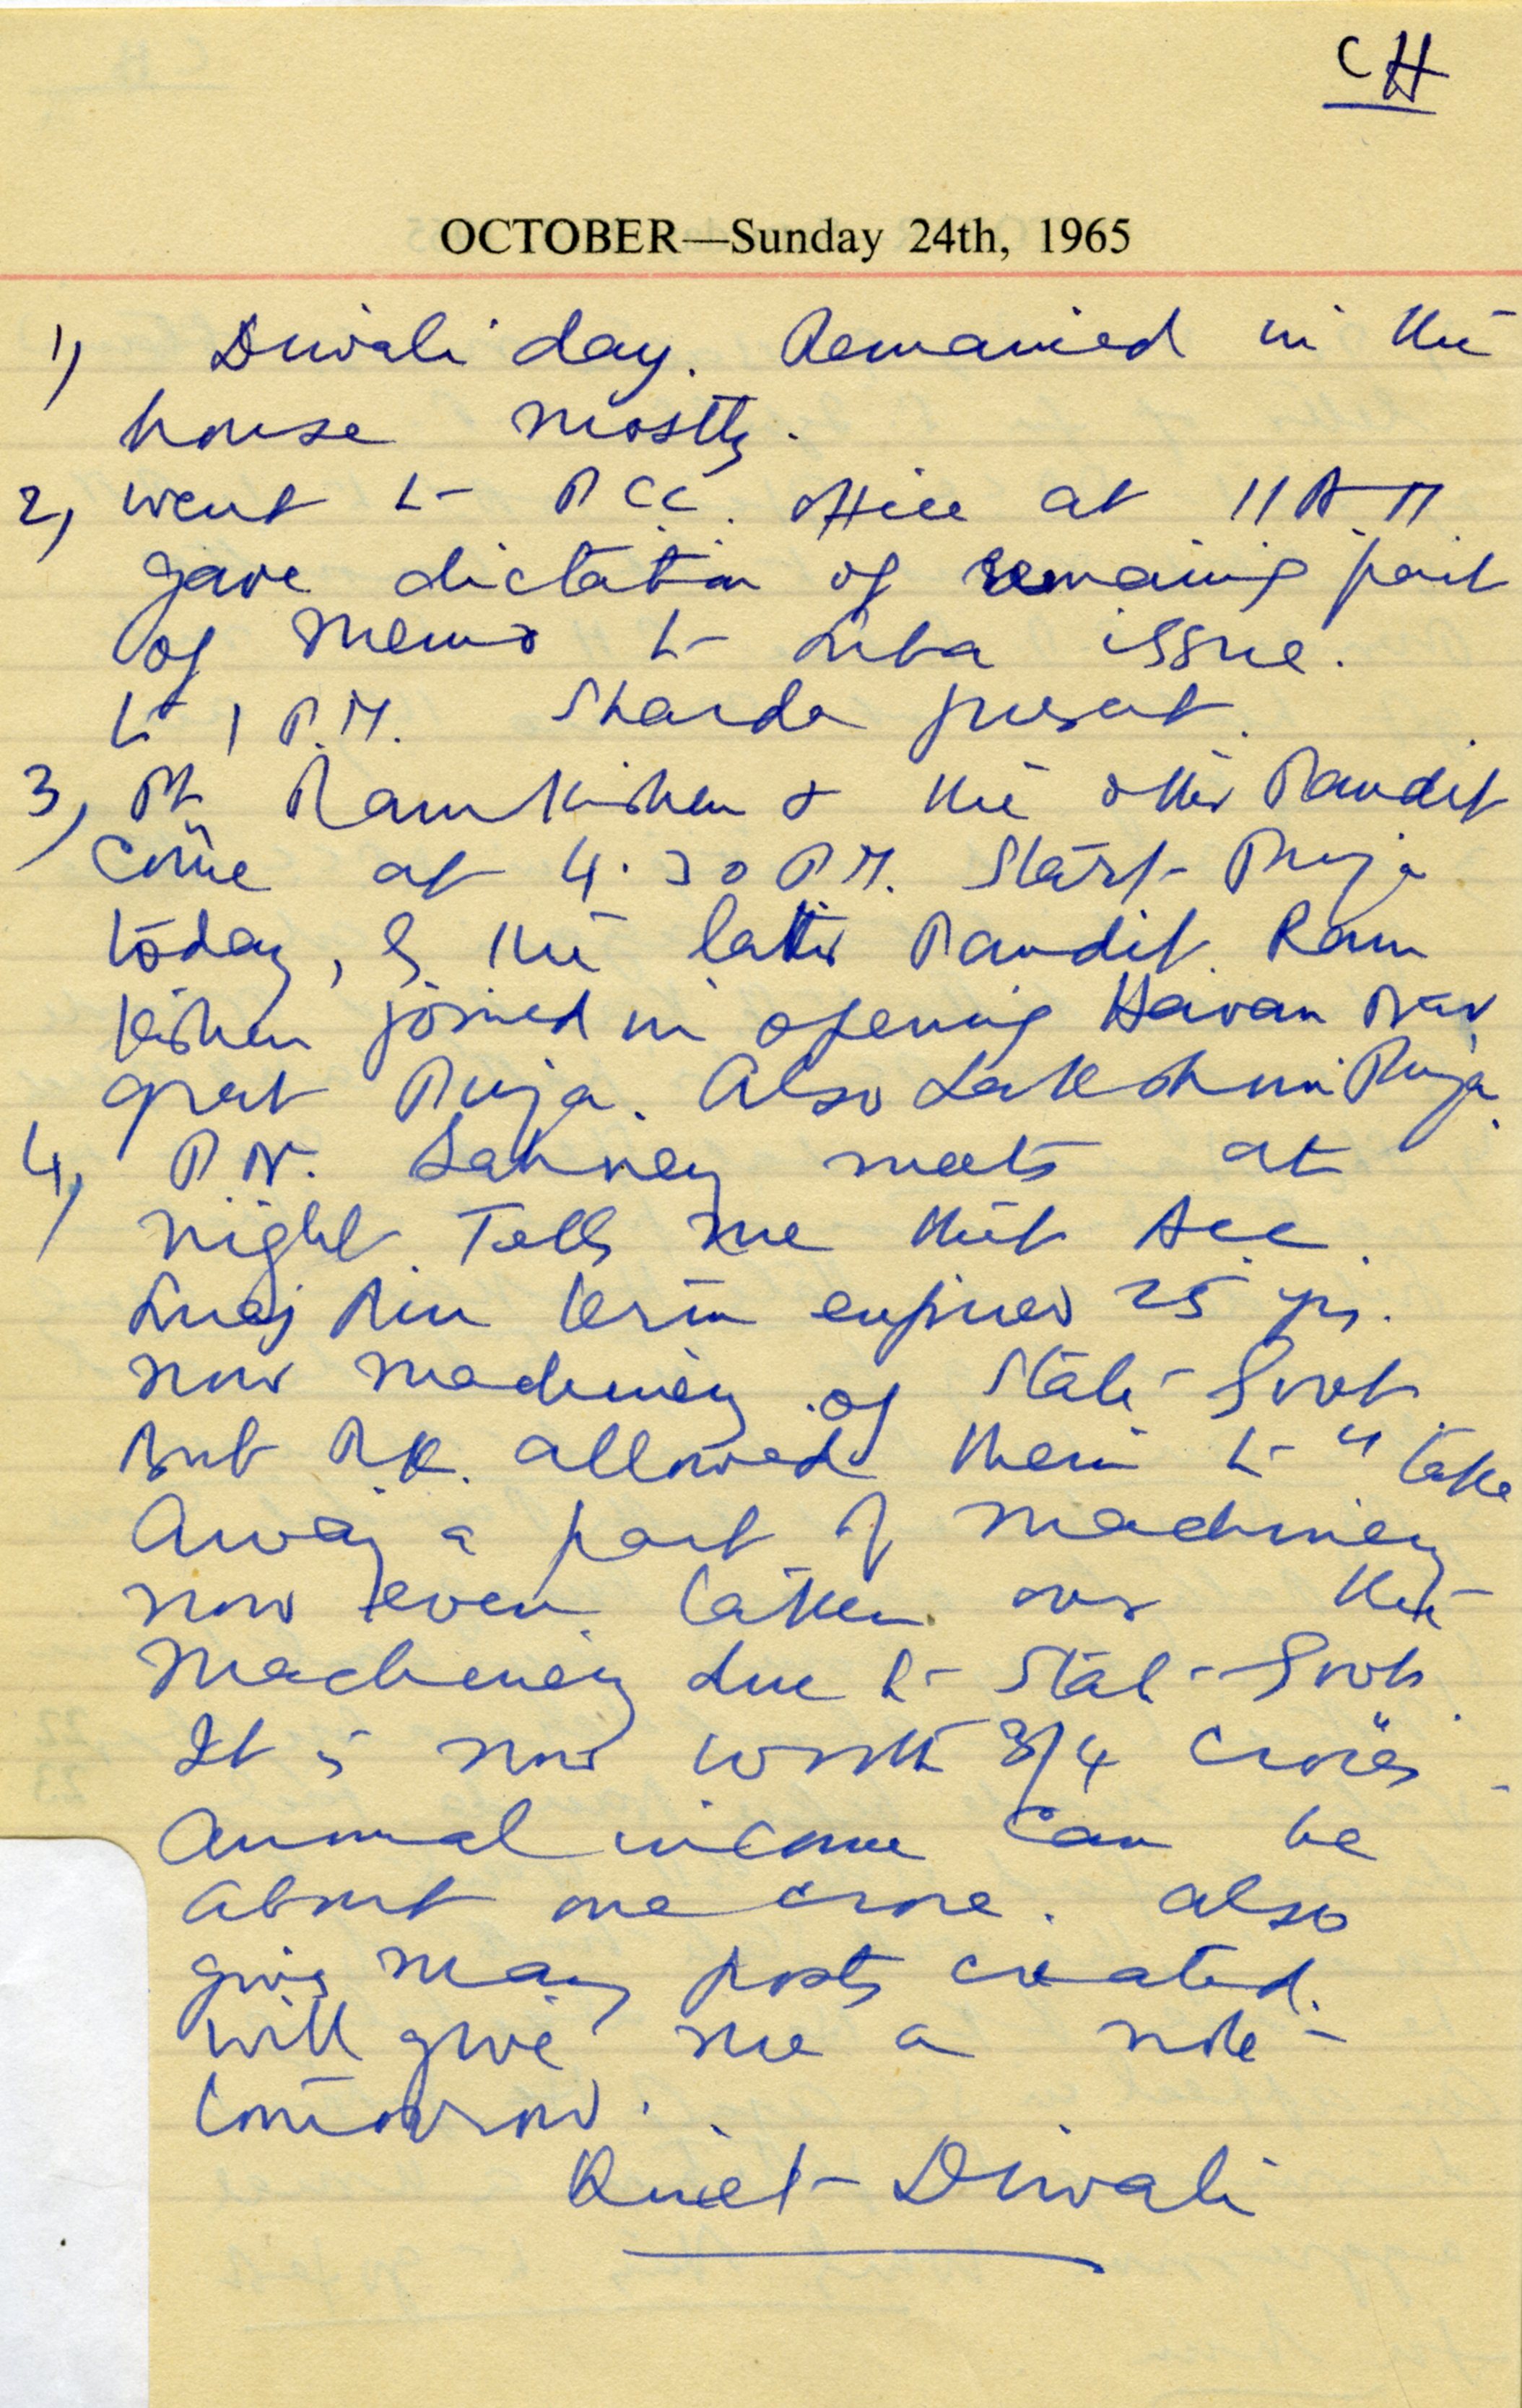 CH
OCTOBER—Sunday 24th, 1965
1) Diwali day. Remained in the
house mostly.
2) went to P.C.C. office at 11 A.M
gave dictation of remaining part
of memo to Suba issue.
to 1 P.M. Sharda present.
3) Pt Ram Kishen & the other Pandit
come at 4.30 P.M. Start Puja
today, by the latter Pandit. Ram
Kishen joined in opening Havan Nav
Puja. Also Lakshmi Puja.
4) P.N. Sahney meets at
night. Tells me that Acc.
term expires 25 yrs.
now machinery of State Govt
but R.K. allowed them to "take
away a part of machinery
now even taken over the
machinery due to State Govt.
It is now worth 3/4 crores.
Annual income can be
about one crore. also
give many posts created.
will give me a note
tomorrow.
Quiet Diwali